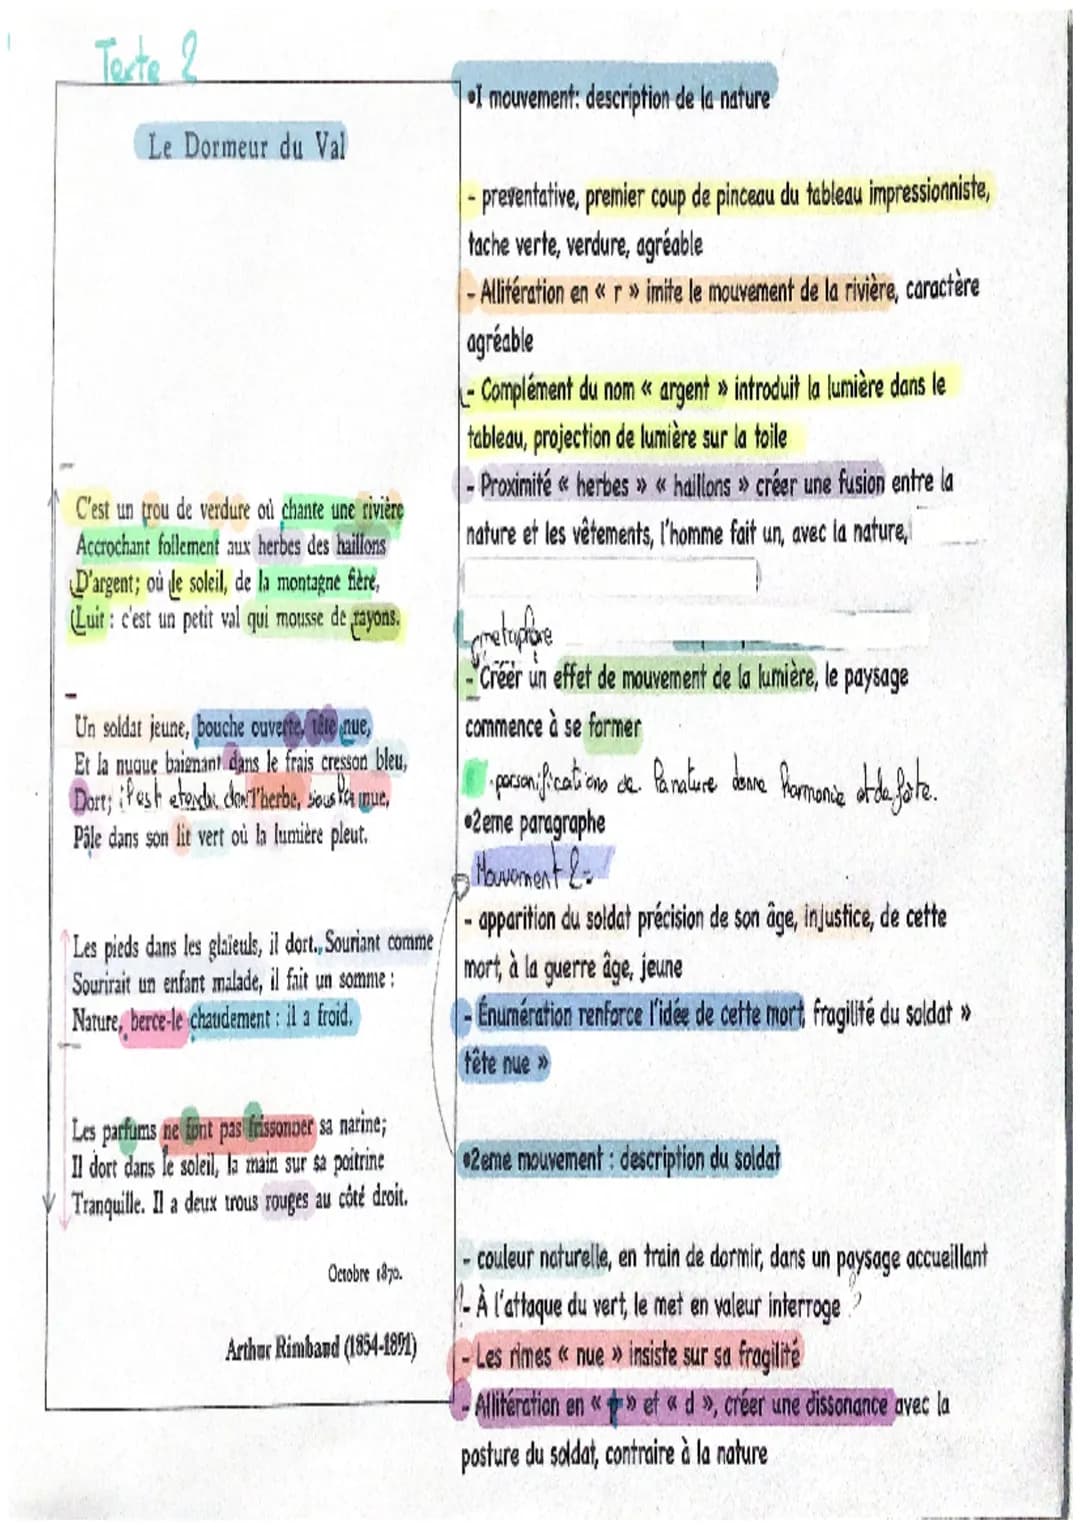 Texte 2
Le Dormeur du Val
C'est un trou de verdure où chante une rivière
Accrochant follement aux herbes des haillons
D'argent; où le soleil, de la montagne fière,
Luit : c'est un petit val qui mousse de rayons.
Un soldat jeune, bouche ouverte, tête nue,
Et la nuque baignant dans le frais cresson bleu,
Dort; il est etendu dans l'herbe, sous la nue,
Pâle dans son lit vert où la lumière pleut.
Les pieds dans les glaïeuls, il dort. Souriant comme
Sourirait un enfant malade, il fait un somme :
Nature, berce-le chaudement : il a froid.
Les parfums ne font pas frissonner sa narine;
Il dort dans le soleil, la main sur sa poitrine
Tranquille. Il a deux trous rouges au côté droit.
Octobre 1870.
Arthur Rimbaud (1854-1891)
•I mouvement: description de la nature
- preventative, premier coup de pinceau du tableau impressionniste,
tache verte, verdure, agréable
- Allitération en « r » imite le mouvement de la rivière, caractère
agréable
- Complément du nom « argent » introduit la lumière dans le
tableau, projection de lumière sur la toile
- Proximité « herbes » « haillons » créer une fusion entre la
nature et les vêtements, l'homme fait un, avec la nature,
metaphore
- Créer un effet de mouvement de la lumière, le paysage
commence à se former
. personifications de la nature donne harmonie et de
•2eme paragraphe
Mouvement 2=
- apparition du soldat précision de son âge, injustice, de cette
mort, à la guerre âge, jeune
- Énumération renforce l'idée de cette mort, fragilité du soldat »
tête nue »
•2eme mouvement : description du soldat
- couleur naturelle, en train de dormir, dans un paysage accueillant
?- À l'attaque du vert, le met en valeur interroge ?
- Les rimes « nue » insiste sur sa fragilité
- Allitération en « t » et « d », créer une dissonance avec la
posture du soldat, contraire à la nature